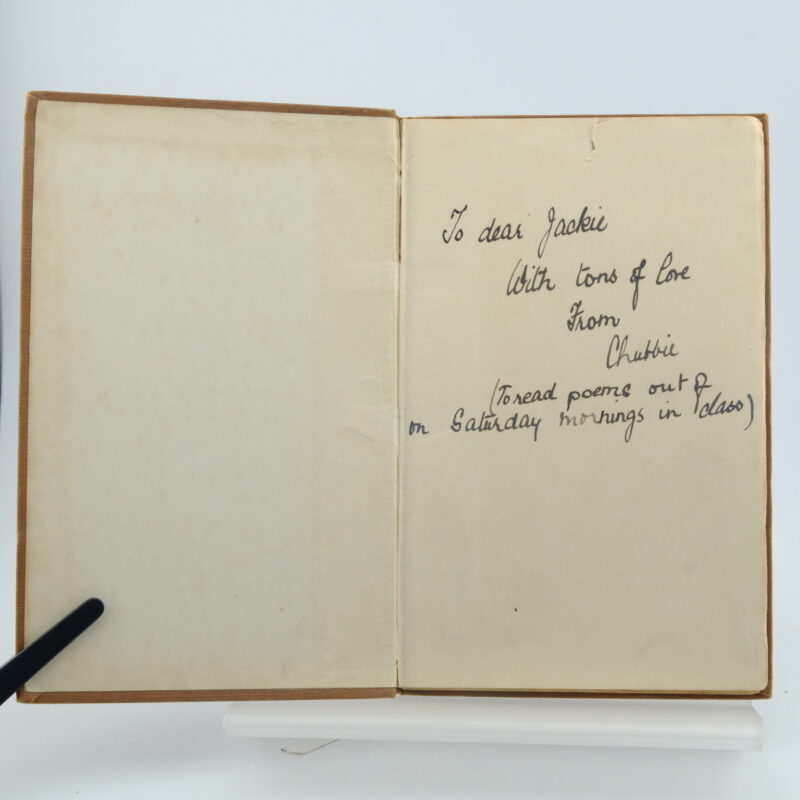 To dear Jackie
With tons of love
From
Chubbie
(To read poems out of
on Saturday mornings in class)